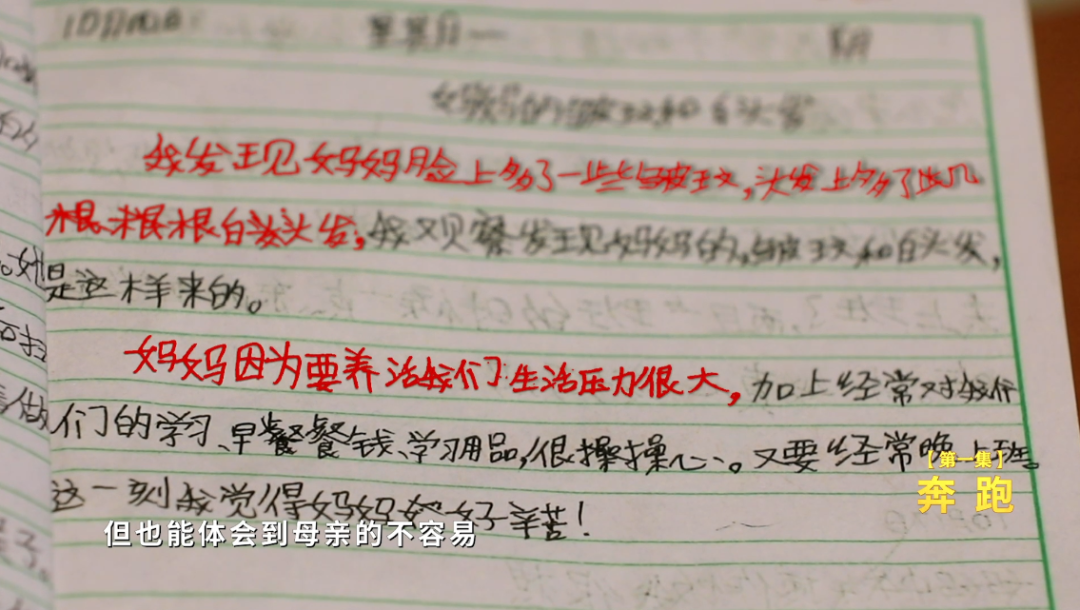 10月10日 星期一
妈妈的皱纹和白头发
我发现妈妈脸上多了一些皱纹,头发上多了几
根根白头发,我观察发现妈妈的皱纹和白头发,
是这样来的。
妈妈因为要养活我们生活压力很大,加上经常对我们
们的学习、早餐餐钱、学习用品,很操操心、。又要经常晚上班。
这一刻我觉得妈妈她好辛苦!
【第一集】
奔跑
但也能体会到母亲的不容易